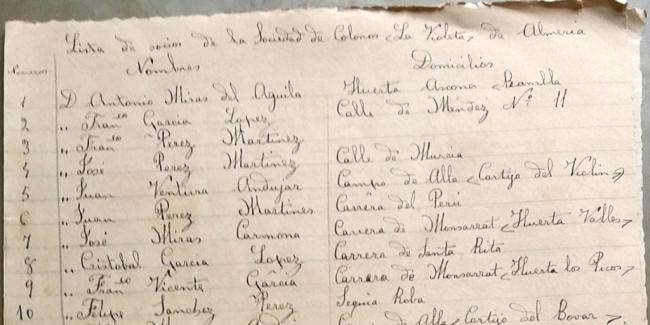 Lista de socios de la Sociedad de Colonos "La Violeta" de Almeria
Numeros Nombres Domicilios
1 D Antonio Miras del Aguila Huerta Azcona Rambla
2 " Fran co Garcia Lopez Calle de Mendez Nº 11
3 " Fran co Perez Martinez
4 " José Perez Martinez Calle de Murcia
5 " Juan Ventura Andujar Campo de Alla "Cortijo del Violin"
6 " Juan Perez Martines Carrera del Perú
7 " José Miras Carmona Carrera de Monsarrat "Huerta Valles"
8 " Cristobal Garcia Lopez Carrera de Santa Rita
9 " Fran co Vicente Garcia Carrera de Monsarrat "Huerta los Picos"
10 " Felipe Sanchez Perez Seguia Roba
de Alla "Cortijo del Bovar"